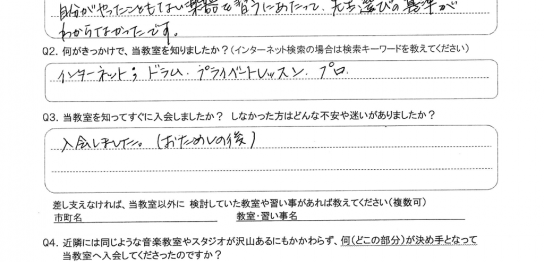 自分がやったこともない楽器を習うにあたって、先生選びの基準が
わからなかったです。
Q2. 何がきっかけで、当教室を知りましたか？（インターネット検索の場合は検索キーワードを教えてください）
インターネット; ドラム. プライベートレッスン. プロ.
Q3. 当教室を知ってすぐに入会しましたか？ しなかった方はどんな不安や迷いがありましたか？
入会しました。(おためしの後)
差し支えなければ、当教室以外に 検討していた教室や習い事があれば教えてください（複数可）
市町名 教室・習い事名
Q4. 近隣には同じような音楽教室やスタジオが沢山あるにもかかわらず、何（どこの部分）が決め手となって
当教室へ入会してくださったのですか？